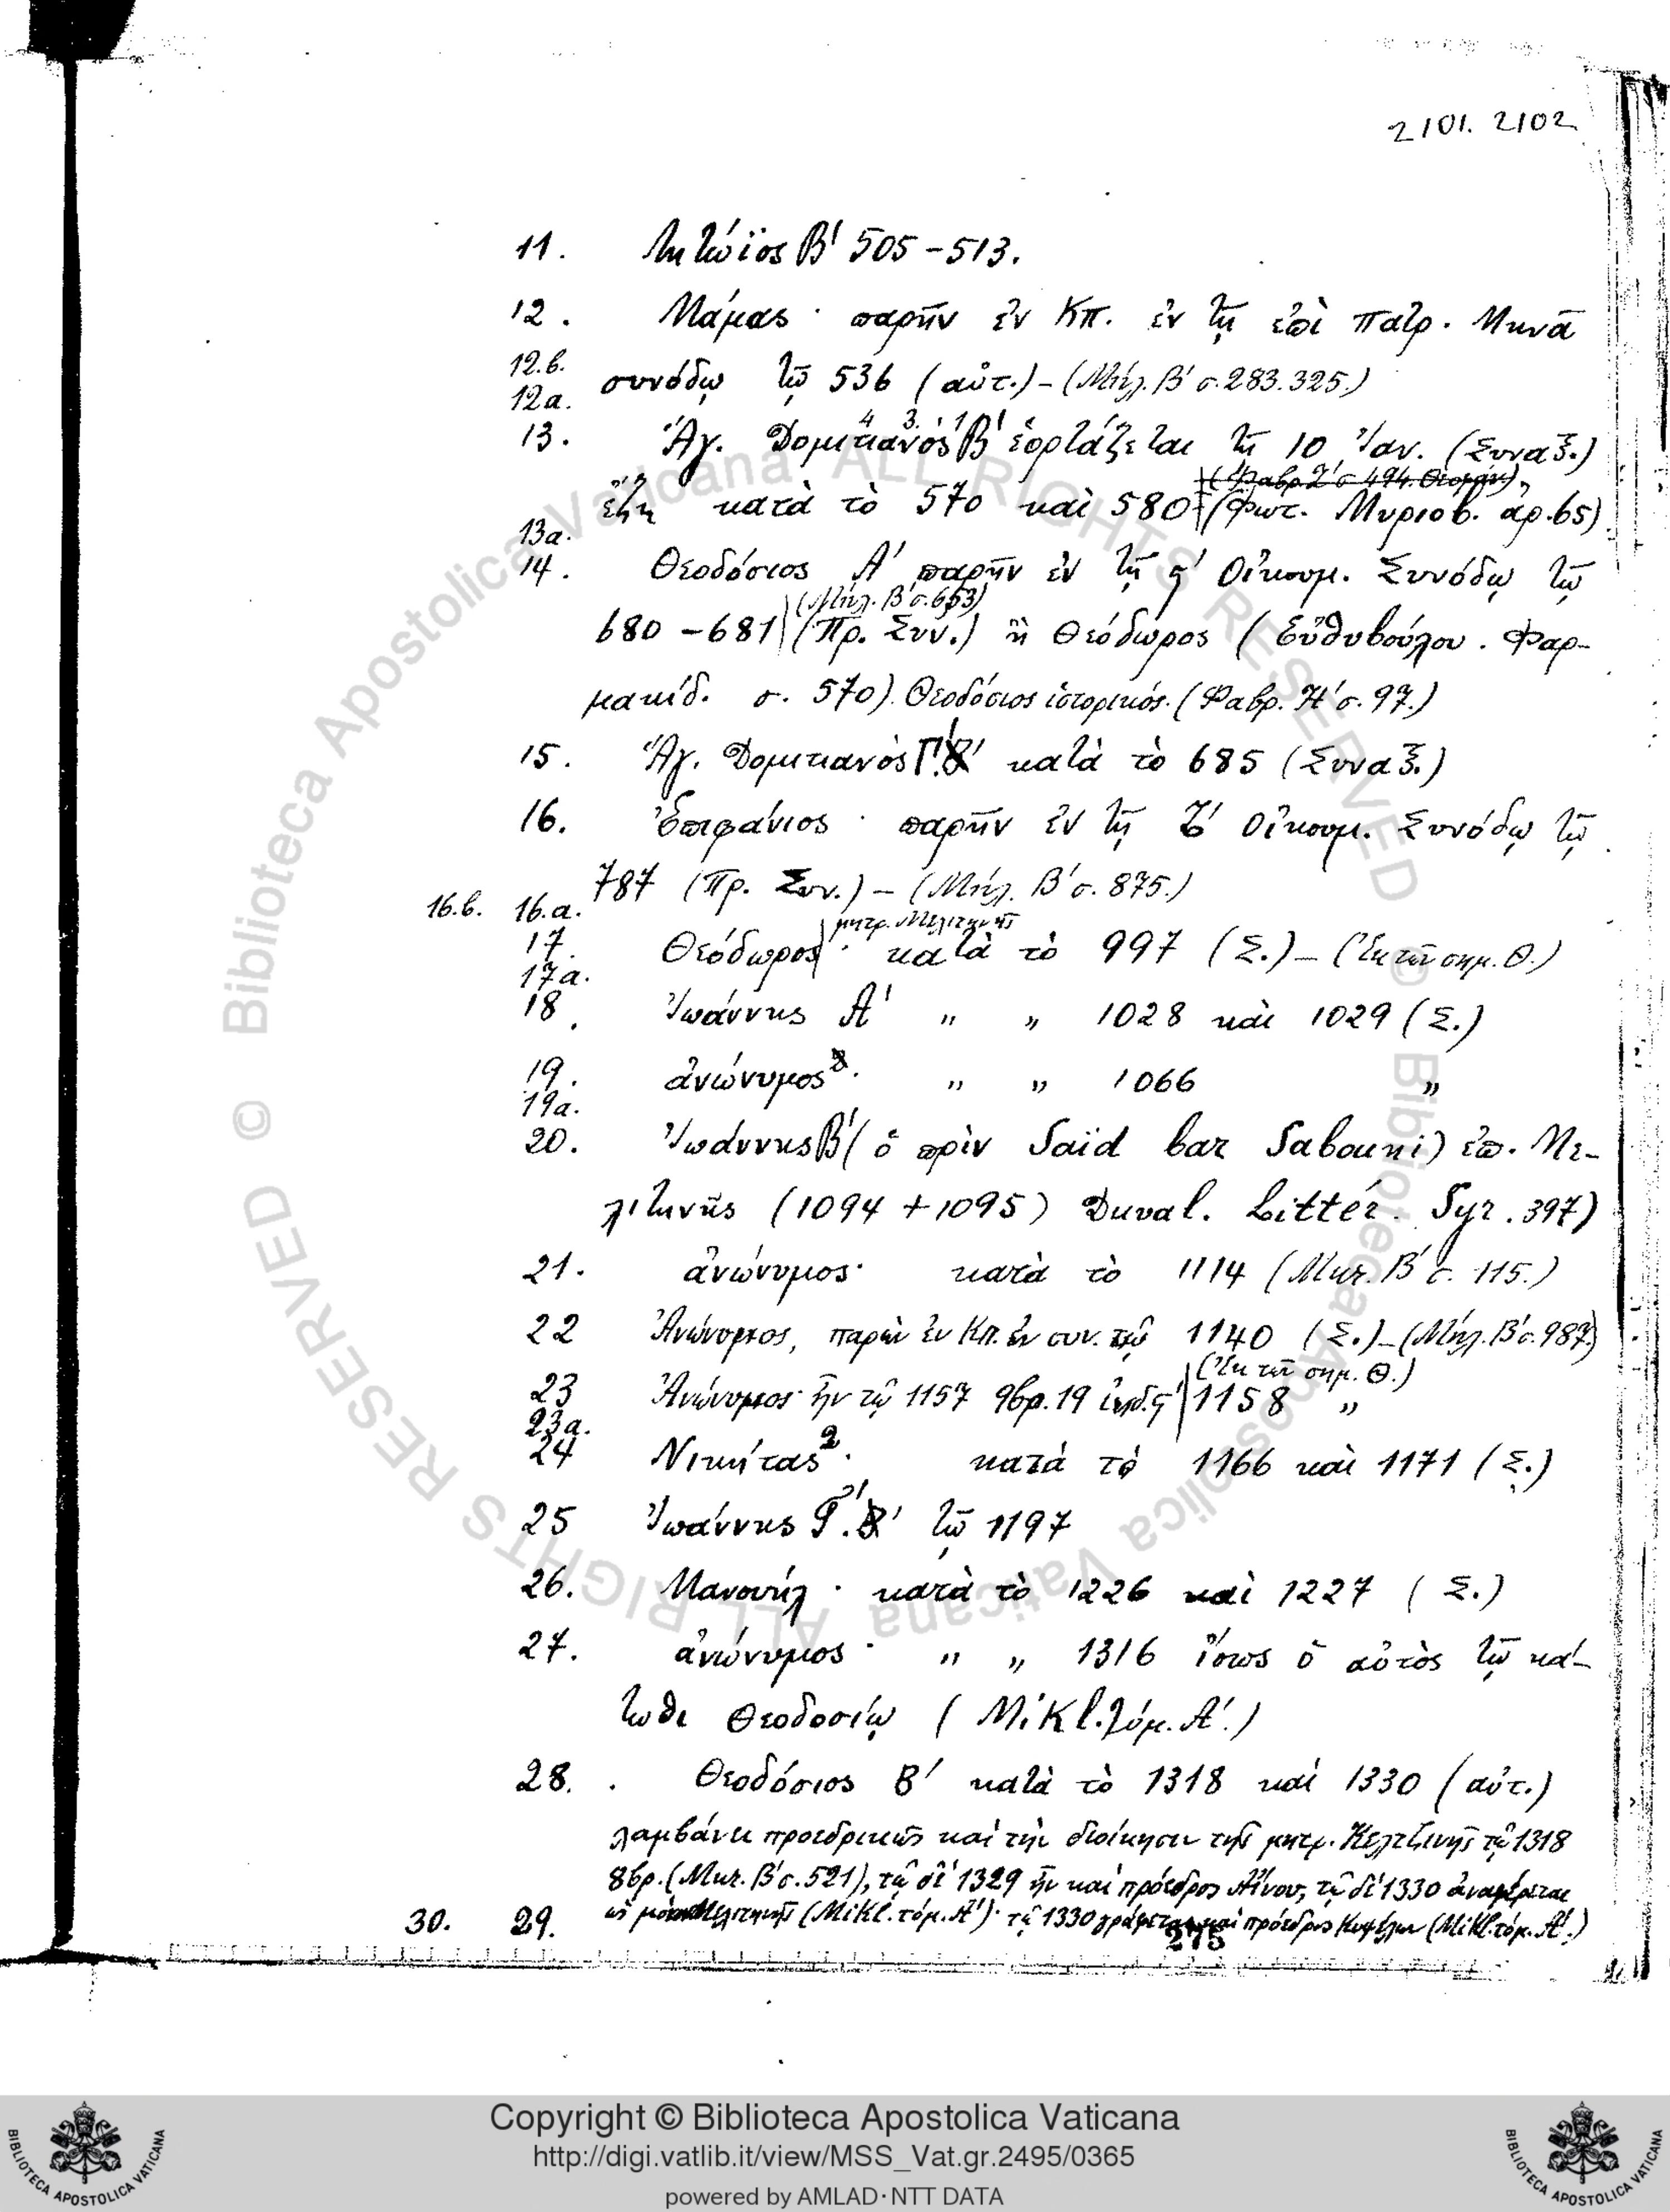 2101. 2102
11. Λητώϊος Β' 505-513.
12. Μάμας · παρῆν ἐν Κπ. ἐν τῇ ἐπὶ πατρ. Μηνᾶ
12.β.
συνόδῳ τῷ 536 (αὐτ.) - (Μήλ. Β' σ. 283. 325.)
12α.
13. Ἅγ. Δομιτιανός Β' ἑορτάζεται τῇ 10 Ἰαν. (Συναξ.)
ἔζη κατὰ τὸ 570 καὶ 580 (Φωτ. Μυριοβ. ἀρ. 65)
13α.
14. Θεοδόσιος Α' παρῆν ἐν τῇ ϛ' Οἰκουμ. Συνόδῳ τῷ
(Μήλ. Β' σ. 653)
680-681 (Πρ. Συν.) ἢ Θεόδωρος (Εὐθυβούλου. Φαρ-
μακίδ. σ. 570). Θεοδόσιος ἱστορικός. (Φαβρ. Η' σ. 97.)
15. Ἅγ. Δομιτιανὸς Γ'. κατὰ τὸ 685 (Συναξ.)
16. Ἐπιφάνιος · παρῆν ἐν τῇ Ζ' Οἰκουμ. Συνόδῳ τῷ
787 (Πρ. Συν.) - (Μήλ. Β' σ. 875.)
16.β. 16.α.
μητρ. Μελιτηνῆς
17. Θεόδωρος · κατὰ τὸ 997 (Σ.) - (Ἐκ τῶν σημ. Θ.)
17α.
18. Ἰωάννης Α' " " 1028 καὶ 1029 (Σ.)
19. ἀνώνυμος · " " 1066 "
19α.
20. Ἰωάννης Β' (ὁ πρὶν Saïd bar Sabouni) ἐπ. Με-
λιτηνῆς (1094 + 1095) Duval. Littér. Syr. 397)
21. ἀνώνυμος · κατὰ τὸ 1114 (Μηλ. Β' σ. 115.)
22 Ἀνώνυμος, παρὼν ἐν Κπ. ἐν συν. τῷ 1140 (Σ.) - (Μήλ. Β' σ. 987.)
(Ἐκ τῶν σημ. Θ.)
23 Ἀνώνυμος ἦν τῷ 1157 9βρ. 19 ἰνδ. ϛ' 1158 "
23α.
24 Νικήτας · κατά τό 1166 καὶ 1171 (Σ.)
25 Ἰωάννης Γ'. τῷ 1197
26. Μανουήλ · κατὰ τὸ 1226 καὶ 1227 (Σ.)
27. ἀνώνυμος · " " 1316 ἴσως ὁ αὐτὸς τῷ κά-
τωθι Θεοδοσίῳ (Mikl. τόμ. Α'.)
28. Θεοδόσιος Β' κατὰ τὸ 1318 καί 1330 (αὐτ.)
λαμβάνει προεδρικῶς καὶ τὴν διοίκησιν τῆς μητρ. Κελτζινῆς τῷ 1318
8βρ. (Μηλ. Β' σ. 521), τῷ δὲ 1329 ἦν καὶ πρόεδρος Αἴνου, τῷ δὲ 1330 ἀναφέρεται
ὡς Μελιτηνῆς (Mikl. τόμ. Α')· τῷ 1330 γράφεται καὶ πρόεδρος Κυψέλων (Mikl. τόμ. Α'.)
30. 29.
275
© Biblioteca Apostolica Vaticana ALL RIGHTS RESERVED
© Biblioteca Apostolica Vaticana ALL RIGHTS RESERVED
Copyright © Biblioteca Apostolica Vaticana
http://digi.vatlib.it/view/MSS_Vat.gr.2495/0365
powered by AMLAD·NTT DATA
BIBLIOTECA APOSTOLICA VATICANA
BIBLIOTECA APOSTOLICA VATICANA